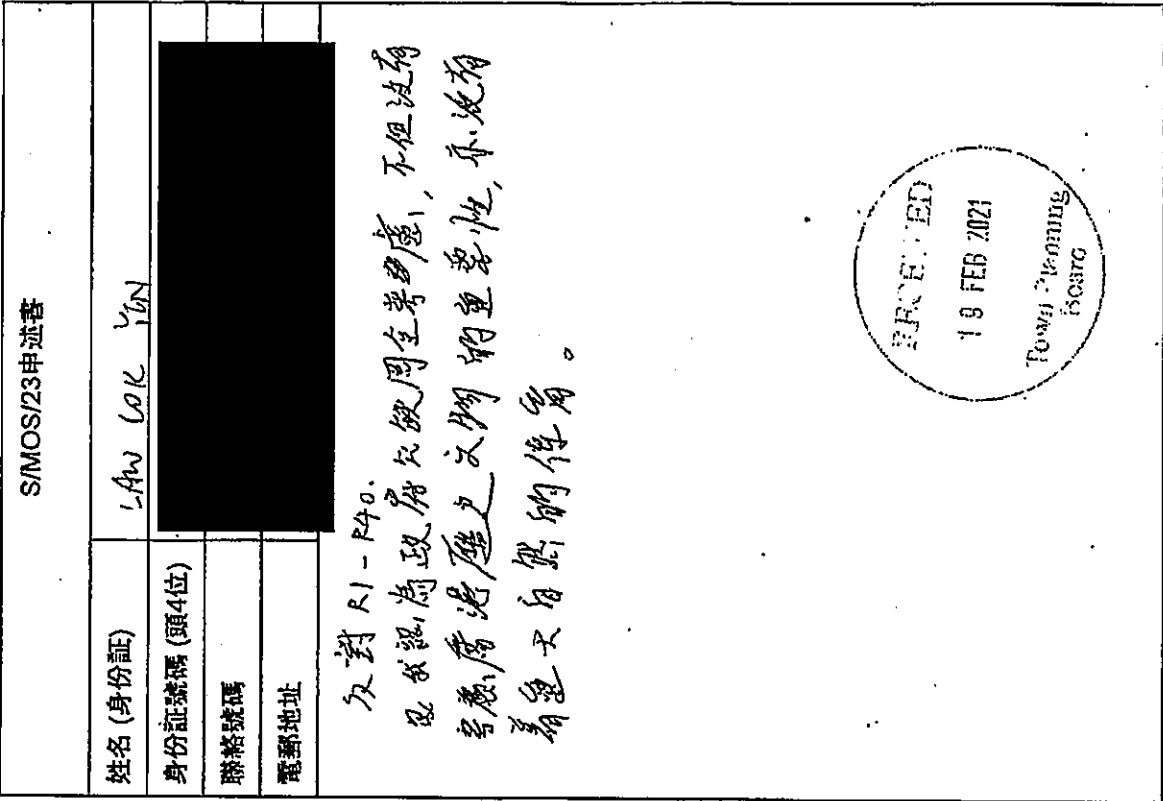 S/MOS/23申述書
姓名 (身份証) LAW LOK YIN
身份証號碼 (頭4位)
聯絡號碼
電郵地址
反對 R1 - R40.
因我認為政府欠缺周全考慮, 不但沒有
考慮香港歷史文物的重要性, 亦沒有
着重大自然的保育。
RECEIVED
18 FEB 2021
Town Planning
Board